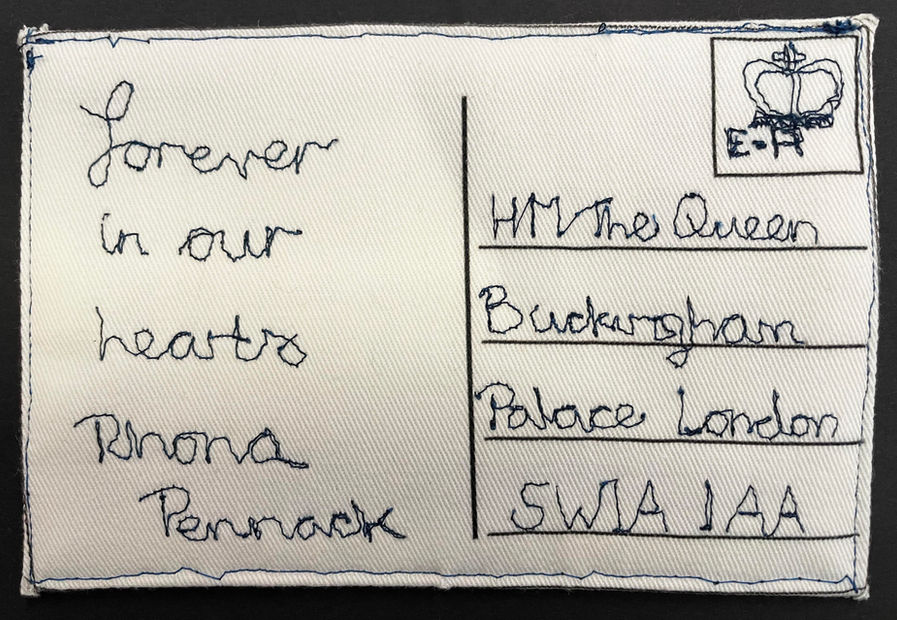 Forever
in our
hearts
Rhona
Pennack
E-R
HM The Queen
Buckingham
Palace London
SW1A 1AA